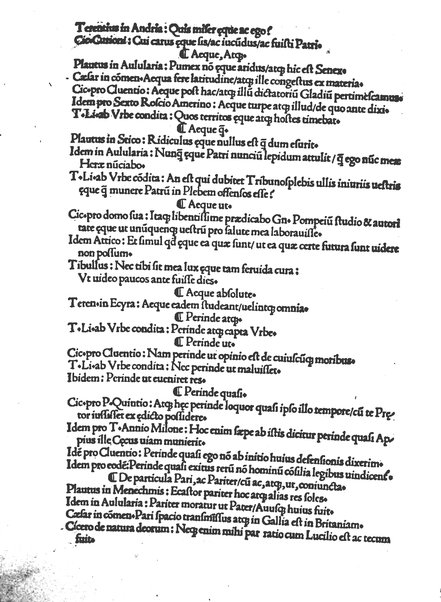 Terentius in Andria: Quis miser ęque ac ego?
Cic•Curioni: Cui carus ęque sis/ac iucūdus/ac fuisti Patri•
¶ Aeque, Atq;•
Plautus in Aulularia: Pumex nō ęque aridus/atq; hic est Senex•
Cæsar in cōmen•Aequa fere latitudine/atq; ille congestus ex materia•
Cic•pro Cluentio: Aeque post hac/atq; illū dictatoriū Gladiū pertimęscamus•
Idem pro Sexto Roscio Amerino: Aeque turpe atq; illud/de quo ante dixi•
T•Li•ab Vrbe condita: Quos territos ęque atq; hostes timebat•
¶ Aeque q̄•
Plautus in Stico: Ridiculus ęque nullus est q̄ dum esurit•
Idem in Aulularia: Nunq̄ ęque Patri nunciū lepidum attulit/q̄ ego nūc meæ
Heræ nūciabo•
T•Li•ab Vrbe cōdita: An est qui dubitet Tribunosplebis ullis iniuriis uestris
ęque q̄ munere Patrū in Plebem offensos esse?
¶ Aeque ut•
Cic•pro domo sua: Itaq; libentissime prædicabo Gn• Pompeiū studio & autori
tate ęque ut unūquenq; uestrū pro salute mea laborauisse•
Idem Attico: Et simul qd ęque ea quæ sunt/ut ea quæ certe futura sunt uidere
non possum•
Tibullus: Nec tibi sit mea lux ęque tam feruida cura:
Vt uideo paucos ante fuisse dies•
¶ Aeque absolute•
Teren•in Ecyra: Aeque eadem studeant/uelintq; omnia•
¶ Perinde atq;•
T•Li•ab Vrbe condita: Perinde atq; capta Vrbe•
¶ Perinde ut•
Cic•pro Cluentio: Nam perinde ut opinio est de cuiuscūq; moribus•
T•Li•ab Vrbe condita: Nec perinde ut maluisset•
Ibidem: Perinde ut eueniret res•
¶ Perinde quasi•
Cic•pro P•Quintio: Atq; hęc perinde loquor quasi ipso illo tempore/cū te Prę
tor iussisset ex edicto possidere•
Idem pro T•Annio Milone: Hoc enim sæpe ab istis dicitur perinde quasi Ap
pius ille Cęcus uiam munierit•
Idē pro Cluentio: Perinde quasi ego nō ab initio huius defensionis dixerim•
Idem pro eodē: Perinde quasi exitus rerū nō hominū cōsilia legibus uindicent•
¶ De particula Pari, ac Pariter/cū ac, atq;, ut, coniuncta•
Plautus in Menechmis: Ecastor pariter hoc atq; alias res soles•
Idem in Aulularia: Pariter moratur ut Pater/Auusq; huius fuit•
Cæsar in cōmen•Pari spacio transmissus atq; in Gallia est in Britaniam•
Cicero de natura deorum: Neq; enim mihi par ratio cum Lucilio est ac tecum
fuit•